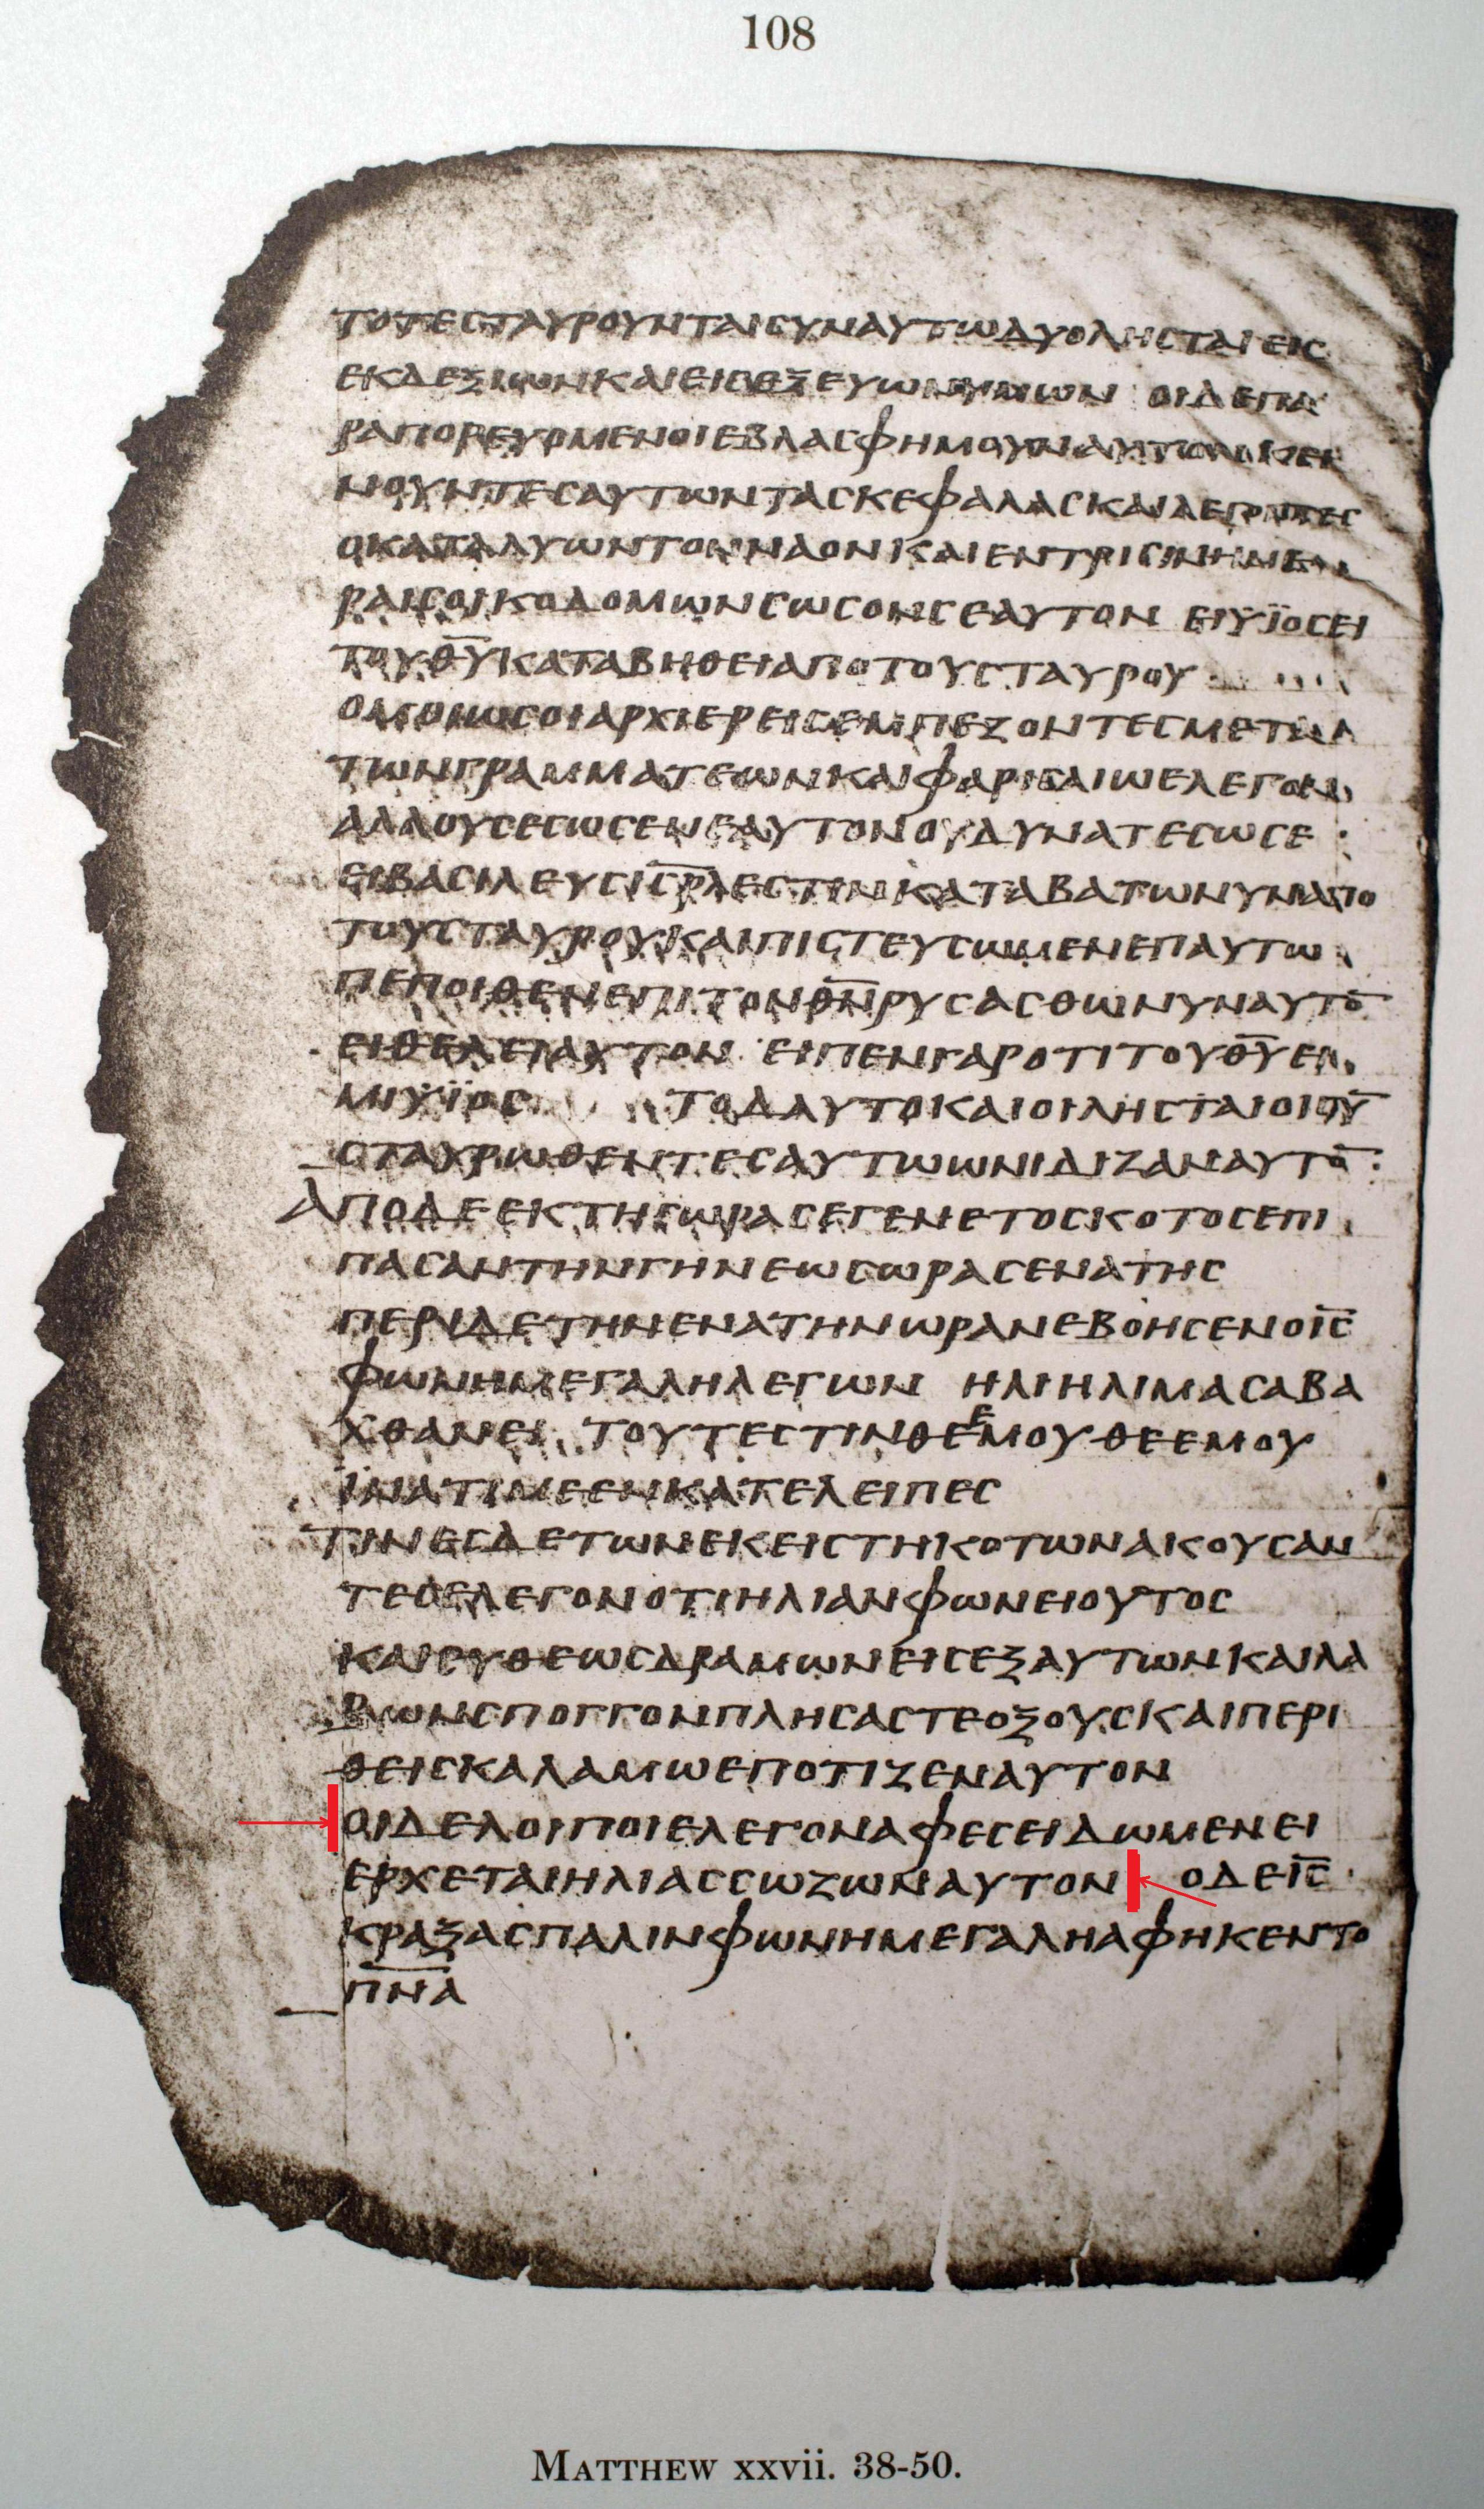 108
ΤΟΤΕСΤΑΥΡΟΥΝΤΑΙСΥΝΑΥΤωΔΥΟΛΗСΤΑΙΕΙС
ΕΚΔΕΞΙωΝΚΑΙΕΙСΕΞΕΥωΝΥΜωΝ ΟΙΔΕΠΑ
ΡΑΠΟΡΕΥΟΜΕΝΟΙΕΒΛΑСΦΗΜΟΥΝΑΥΤΟΝΚΕΙ
ΝΟΥΝΤΕСΑΥΤωΝΤΑСΚΕΦΑΛΑСΚΑΙΛΕΓΟΝΤΕС
ΟΚΑΤΑΛΥωΝΤΟΝΝΑΟΝΚΑΙΕΝΤΡΙСΙΝΗΜΕ
ΡΑΙСΟΙΚΟΔΟΜωΝСωСΟΝСΕΑΥΤΟΝ ΕΙΫΪΟСΕΙ
ΤΟΥΘ̅Υ̅ΚΑΤΑΒΗΘΕΙΑΠΟΤΟΥСΤΑΥΡΟΥ
ΟΜΟΙωСΟΙΑΡΧΙΕΡΕΙСΕΜΠΕΖΟΝΤΕСΜΕΤΑ
ΤωΝΓΡΑΜΜΑΤΕωΝΚΑΙΦΑΡΙСΑΙωΕΛΕΓΟΝ
ΑΛΛΟΥСΕСωСΕΝΕΑΥΤΟΝΟΥΔΥΝΑΤΕСωСΕ
ΕΙΒΑСΙΛΕΥСΙ̅С̅Ρ̅Λ̅ΕСΤΙΝΚΑΤΑΒΑΤωΝΥΝΑΠΟ
ΤΟΥСΤΑΥΡΟΥΚΑΙΠΙСΤΕΥСωΜΕΝΕΠΑΥΤω
ΠΕΠΟΙΘΕΝΕΠΙΤΟΝΘ̅Ν̅ΡΥСΑСΘωΝΥΝΑΥΤΟ̅
ΕΙΘΕΛΕΙΑΥΤΟΝ ΕΙΠΕΝΓΑΡΟΤΙΤΟΥΘ̅Υ̅ΕΙ
ΜΙΫΪΟС ΤΟΔΑΥΤΟΚΑΙΟΙΛΗСΤΑΙΟΙСΥ̅
СΤΑΥΡωΘΕΝΤΕСΑΥΤωωΝΙΔΙΖΑΝΑΥΤΟ̅
ΑΠΟΔΕΕΚΤΗСωΡΑСΕΓΕΝΕΤΟСΚΟΤΟСΕΠΙ
ΠΑСΑΝΤΗΝΓΗΝΕωСωΡΑСΕΝΑΤΗС
ΠΕΡΙΔΕΤΗΝΕΝΑΤΗΝωΡΑΝΕΒΟΗСΕΝΟΙ̅С̅
ΦωΝΗΜΕΓΑΛΗΛΕΓωΝ ΗΛΙΗΛΙΜΑСΑΒΑ
ΧΘΑΝΕΙ ΤΟΥΤΕСΤΙΝΘΕΕΜΟΥΘΕΕΜΟΥ
ΪΝΑΤΙΜΕΕΝΚΑΤΕΛΕΙΠΕС
ΤΙΝΕСΔΕΤωΝΕΚΕΙСΤΗΚΟΤωΝΑΚΟΥСΑΝ
ΤΕСΕΛΕΓΟΝΟΤΙΗΛΙΑΝΦωΝΕΙΟΥΤΟС
ΚΑΙΕΥΘΕωСΔΡΑΜωΝΕΙСΕΞΑΥΤωΝΚΑΙΛΑ
ΒωΝСΠΟΓΓΟΝΠΛΗСΑСΤΕΟΞΟΥСΚΑΙΠΕΡΙ
ΘΕΙСΚΑΛΑΜωΕΠΟΤΙΖΕΝΑΥΤΟΝ
ΟΙΔΕΛΟΙΠΟΙΕΛΕΓΟΝΑΦΕСΕΙΔωΜΕΝΕΙ
ΕΡΧΕΤΑΙΗΛΙΑССωΖωΝΑΥΤΟΝ ΟΔΕΙ̅С̅
ΚΡΑΞΑСΠΑΛΙΝΦωΝΗΜΕΓΑΛΗΑΦΗΚΕΝΤΟ
Π̅Ν̅Α̅
MATTHEW xxvii. 38-50.